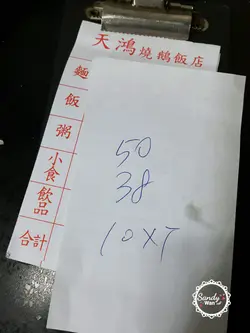 天鴻燒鵝飯店
麵
飯
粥
小食
飲品
合計
50
38
10X7
Sandy's
Wan